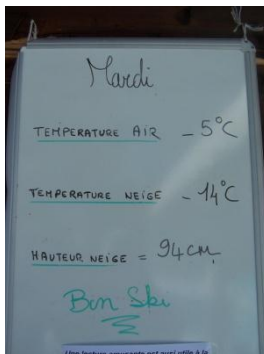 Mardi
TEMPERATURE AIR - 5°C
TEMPERATURE NEIGE - 14°C
HAUTEUR NEIGE = 94 CM
Bon Ski